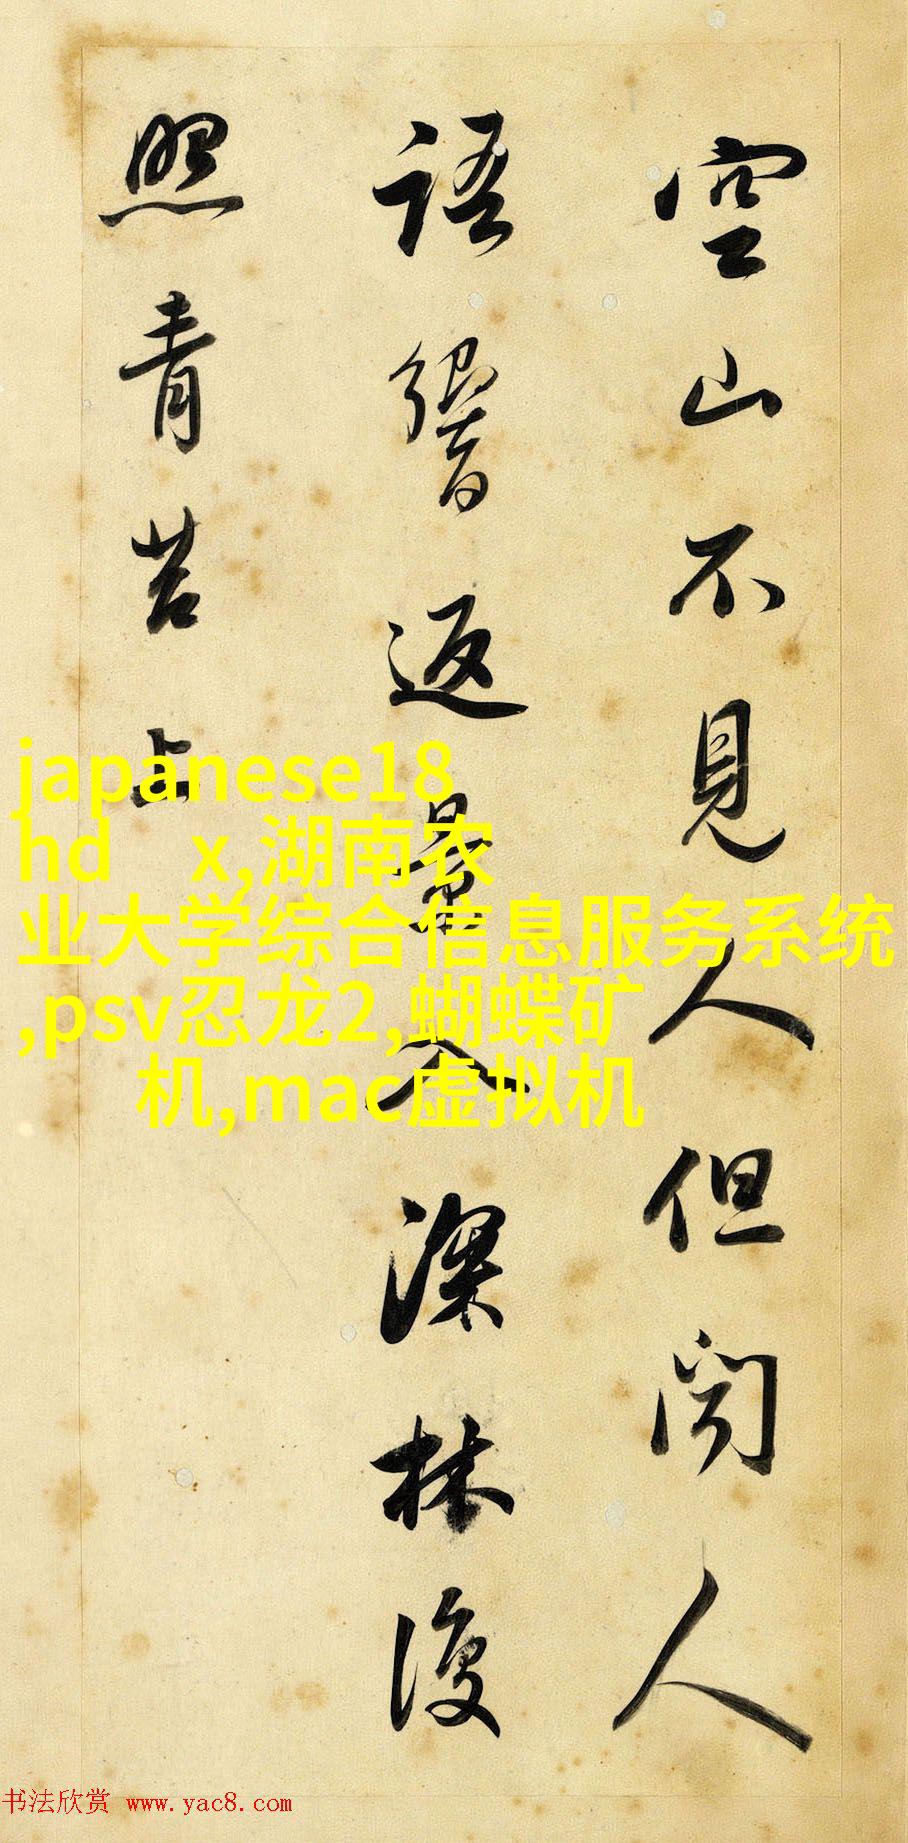 空山不見人但聞人
語響返景入深林復
照青苔上
japanese18
hd x,湖南农
业大学综合信息服务系统
,psv忍龙2,蝴蝶矿
机,mac虚拟机
书法欣赏 www.yac8.com